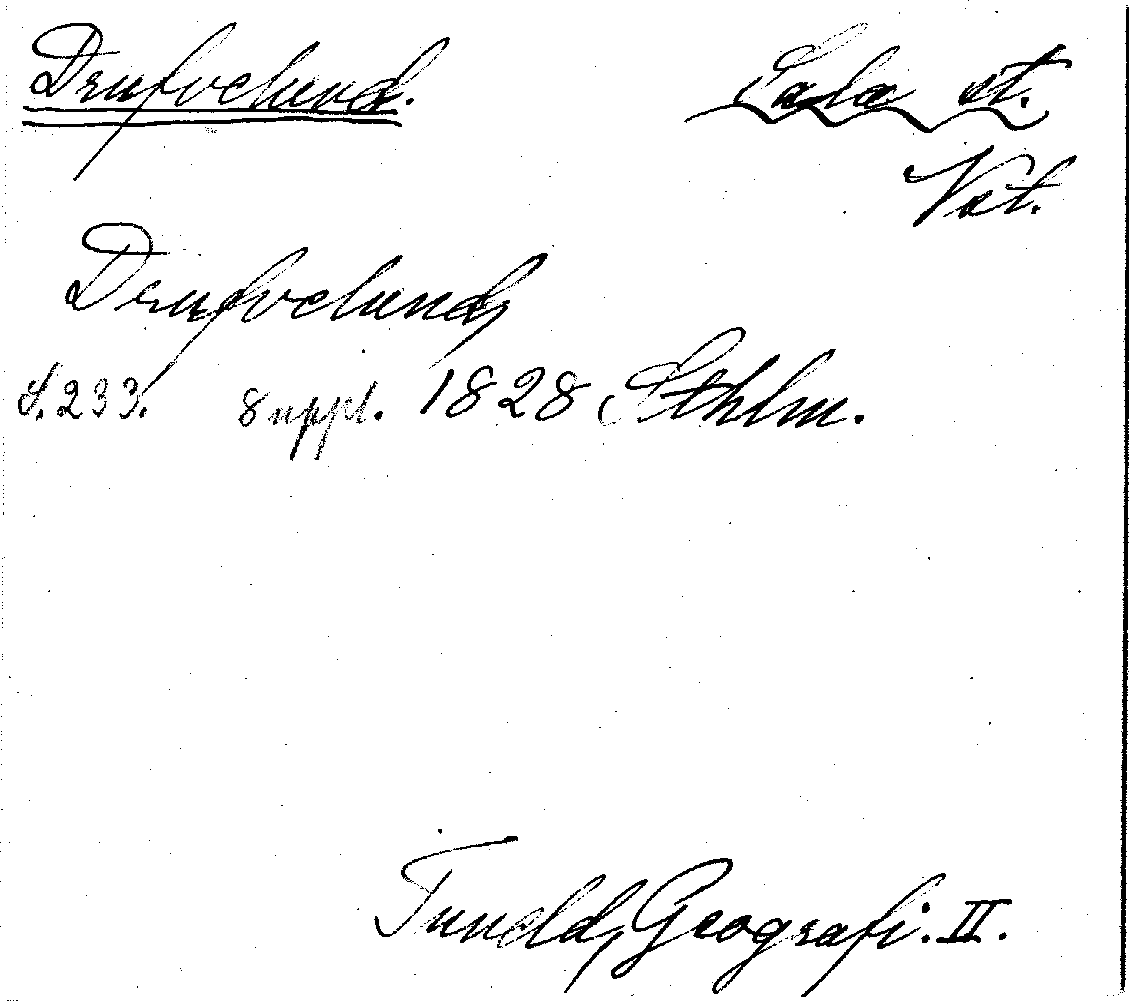 Drufvelund. Sala st.
Vst.
Drufvelund,
S. 233. Suppl. 1828 Sthlm.
Tuneld, Geografi. II.